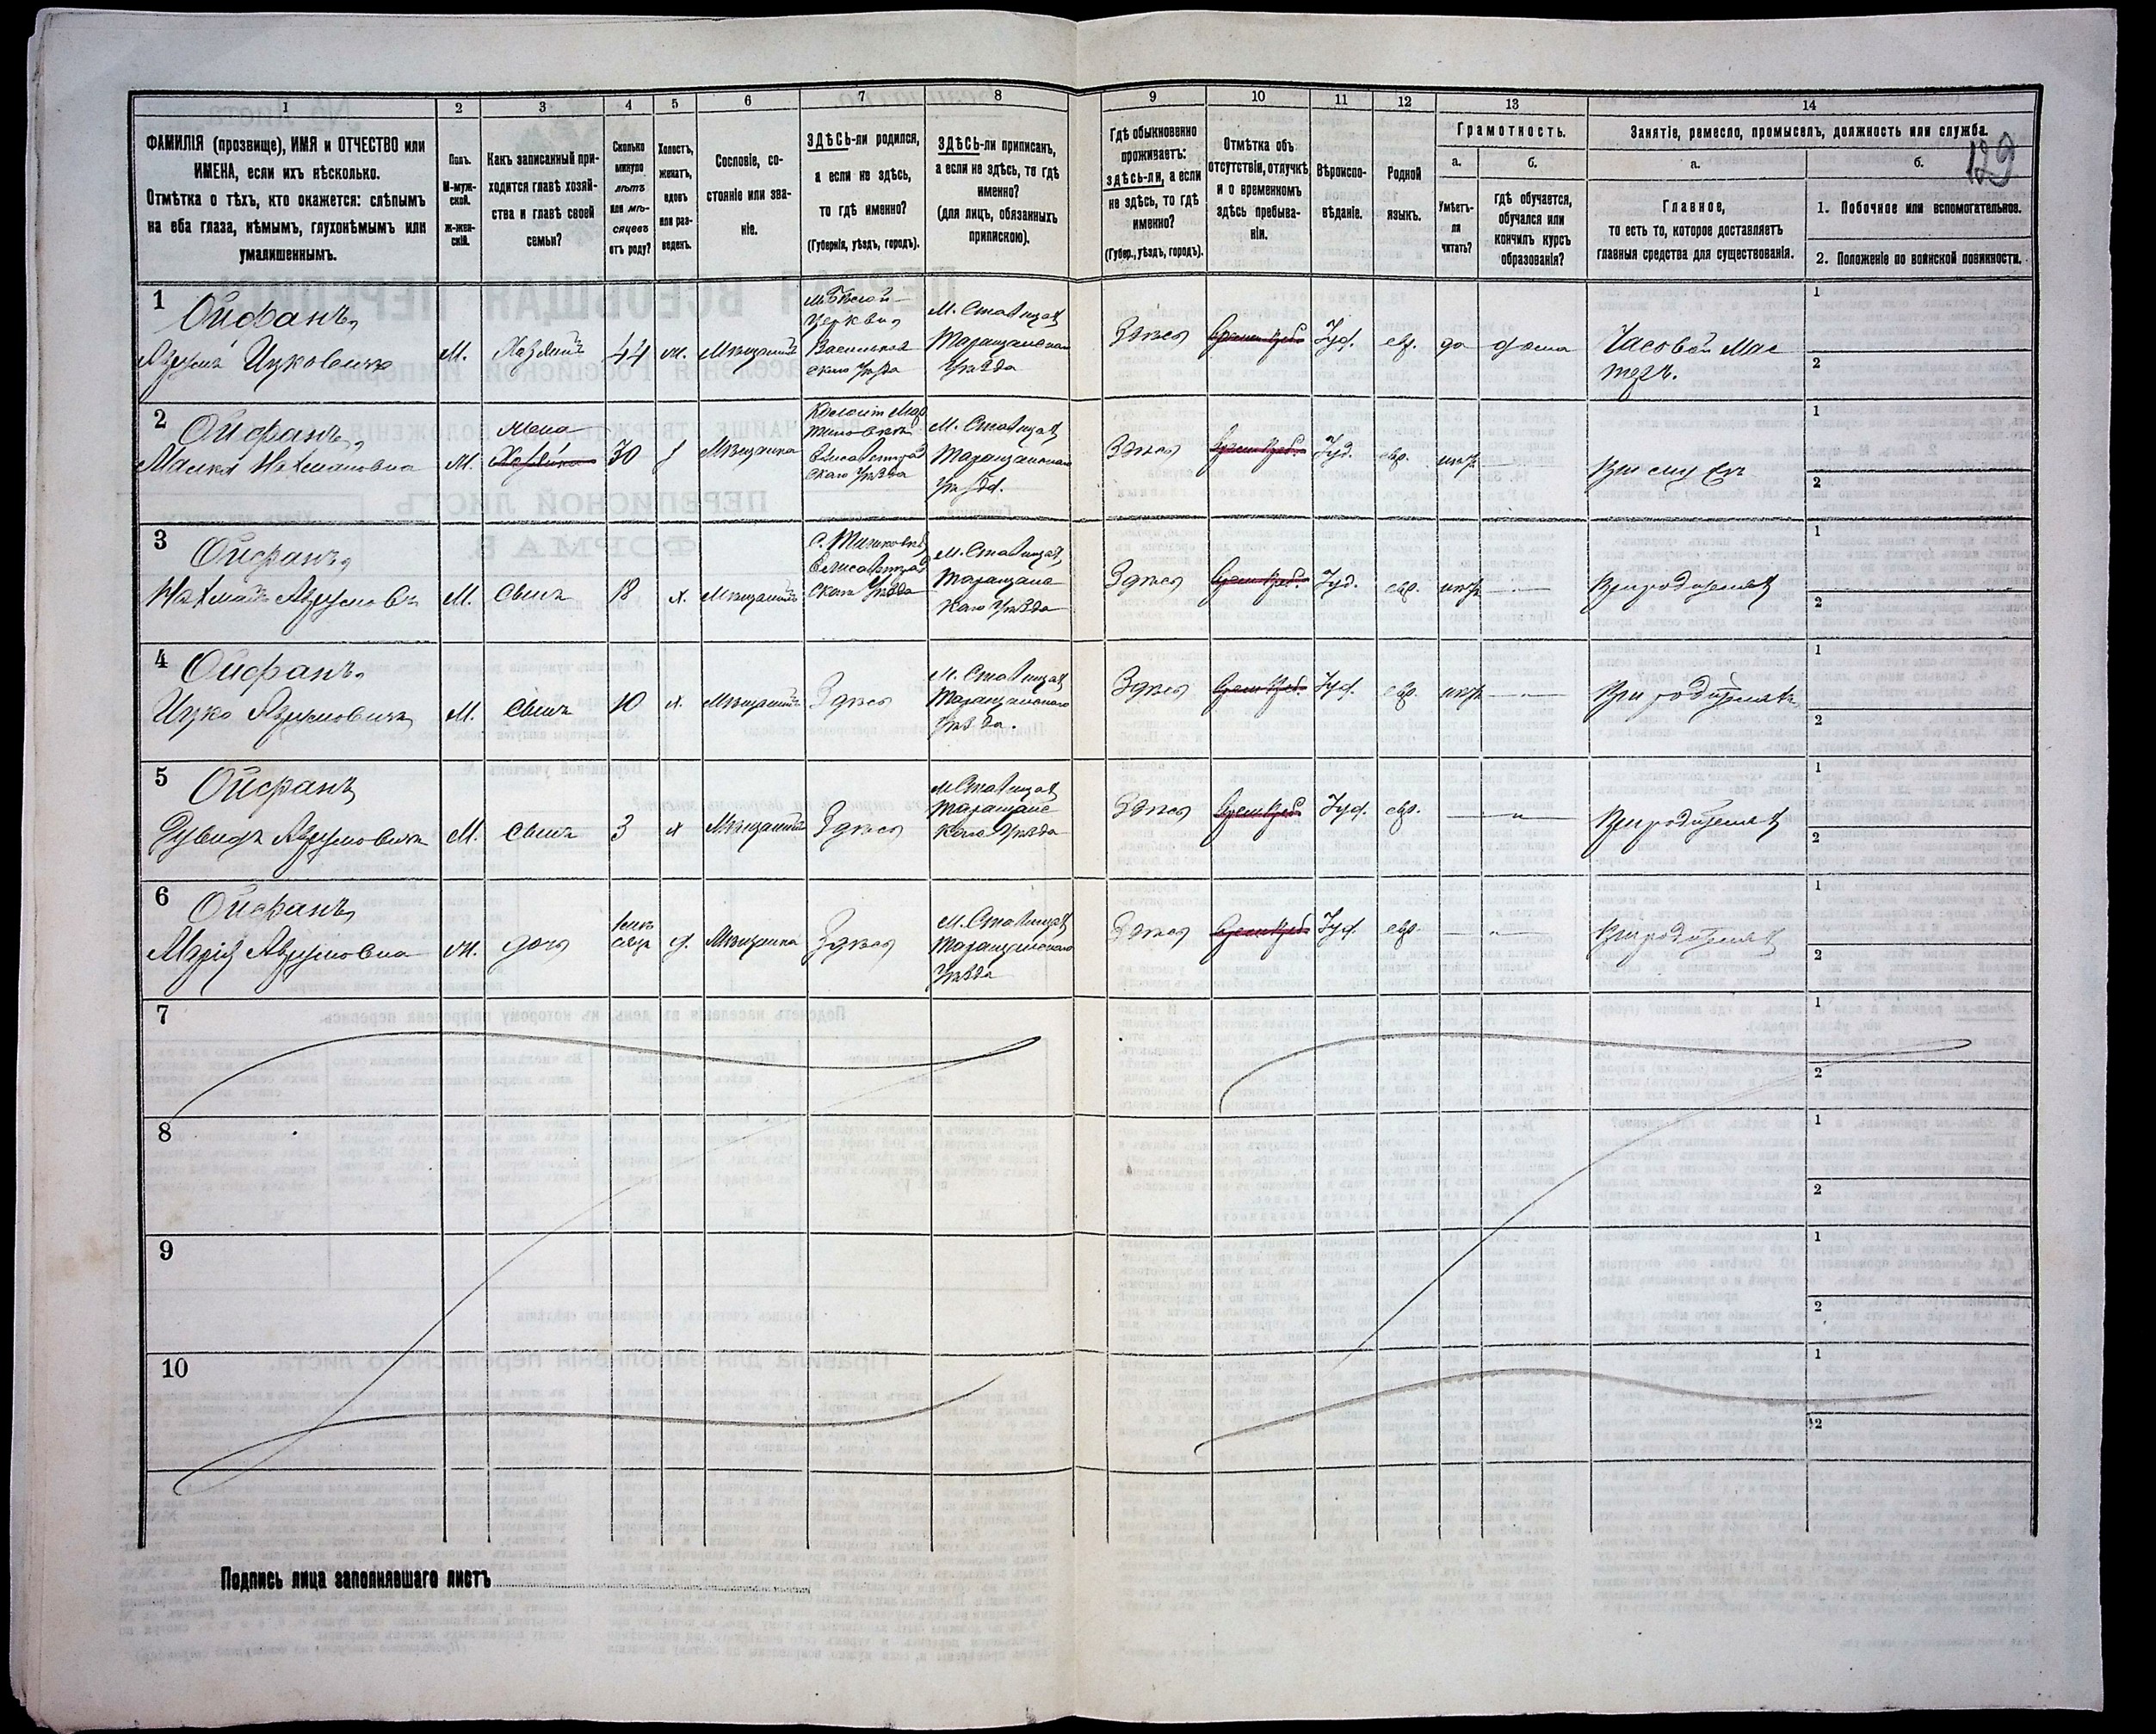 1
2
3
4
5
6
7
8
9
10
11
12
13
14
ФАМИЛІЯ (прозвище), ИМЯ и ОТЧЕСТВО или
ИМЕНА, если ихъ нѣсколько.
Отмѣтка о тѣхъ, кто окажется: слѣпымъ
на оба глаза, нѣмымъ, глухонѣмымъ или
умалишеннымъ.
Полъ.
М-муж-
ской.
ж-жен-
скій.
Какъ записанный при-
ходится главѣ хозяй-
ства и главѣ своей
семьи?
Сколько
минуло
лѣтъ
или мѣ-
сяцевъ
отъ роду?
Холостъ,
женатъ,
вдовъ
или раз-
веденъ.
Сословіе, со-
стояніе или зва-
ніе.
ЗДѢСЬ-ли родился,
а если не здѣсь,
то гдѣ именно?
(Губернія, уѣздъ, городъ).
ЗДѢСЬ-ли приписанъ,
а если не здѣсь, то гдѣ
именно?
(для лицъ, обязанныхъ
припискою).
Гдѣ обыкновенно
проживаетъ:
здѣсь-ли, а если
не здѣсь, то гдѣ
именно?
(Губер., уѣздъ, городъ).
Отмѣтка объ
отсутствіи, отлучкѣ
и о временномъ
здѣсь пребыва-
ніи.
Вѣроиспо-
вѣданіе.
Родной
языкъ.
Грамотность.
а.
Умѣетъ-
ли
читать?
б.
гдѣ обучается,
обучался или
кончилъ курсъ
образованія?
Занятіе, ремесло, промыселъ, должность или служба.
129
а.
Главное,
то есть то, которое доставляетъ
главныя средства для существованія.
б.
1. Побочное или вспомогательное.
2. Положеніе по воинской повинности.
1
Ойфанъ
Аврумъ Ицковичъ
М.
Хозяинъ
44
ж.
Мѣщанинъ
М. Бѣлой
Церкви
Васильков
скаго Уѣзда
М. Ставища
Таращанскаго
Уѣзда
Здѣсь
Іуд.
евр.
да
дома
Часовой Мас
теръ.
1
2
2
Ойфанъ
Малка Нахмановна
М.
Жена
Хозяйка
30
Мѣщанка
Елисаветград
скаго Уѣзда
М. Ставища
Таращанскаго
Уѣзда.
Здѣсь
Іуд.
евр.
нѣтъ
При муже
1
2
3
Ойфанъ
Нахманъ Аврумовъ
М.
Сынъ
18
х.
Мѣщанинъ
Елисаветград
скаго Уѣзда
М. Ставища
Таращанс
каго Уѣзда
Здѣсь
Іуд.
евр.
нѣтъ
При родителяхъ
1
2
4
Ойфанъ
Ицко Аврумовичъ
М.
Сынъ
10
х.
Мѣщанинъ
Здѣсь
М. Ставища
Таращанскаго
Уѣзда.
Здѣсь
Іуд.
евр.
нѣтъ
При родителяхъ
1
2
5
Ойфанъ
Дувидъ Аврумовичъ
М.
Сынъ
3
х
Мѣщанинъ
Здѣсь
М. Ставища
Таращанс
каго Уѣзда
Здѣсь
Іуд.
евр.
При родителяхъ
1
2
6
Ойфанъ
Марія Аврумовна
ж.
дочь
д.
Мѣщанка
Здѣсь
М. Ставища
Таращанскаго
Уѣзда
Здѣсь
Іуд.
евр.
При родителяхъ
1
2
7
1
2
8
1
2
9
1
2
10
1
2
Подпись лица заполнявшаго листъ